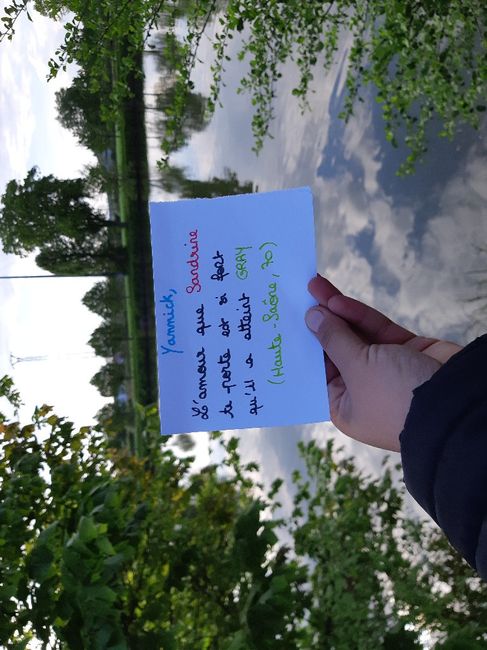 Yannick,
L'amour que Sandrine
te porte est si fort
qu'il a atteint GRAY
(Haute-Saône, 70)